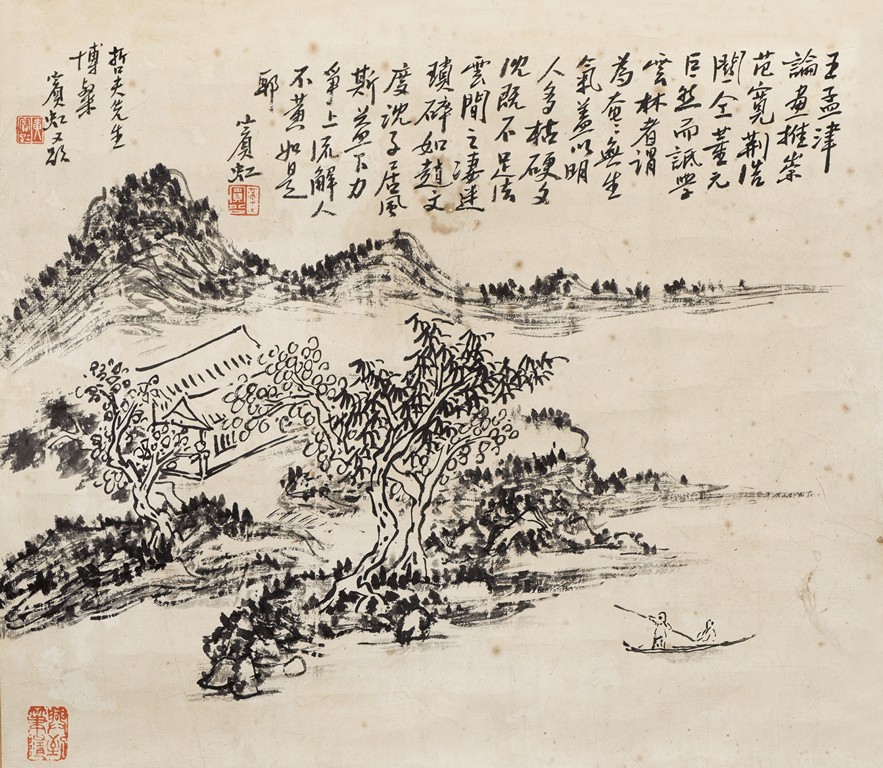 王孟津
論畫推崇
范寬荊浩
關仝董元
巨然而詆學
雲林者謂
為奄〻無生
氣蓋以明
人多枯硬文
沈既不足法
雲間之凄迷
瑣碎如趙文
度沈子居風
斯益下力
爭上流解人
不當如是
耶 賓虹
哲夫先生
博粲
賓虹又題
興到
筆隨